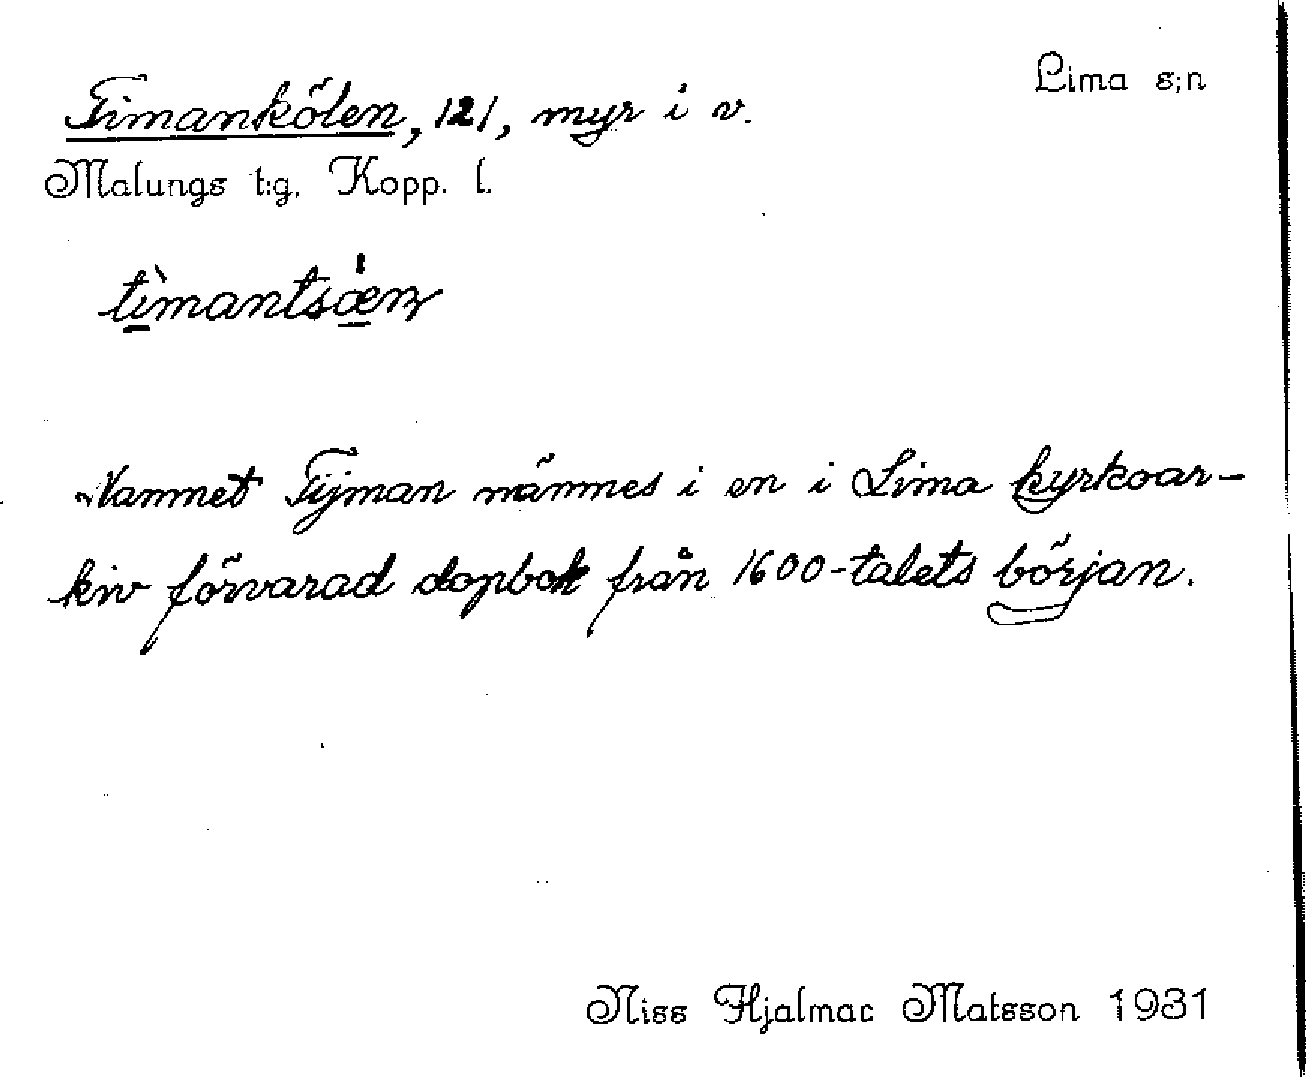 Lima s:n
Timankölen, 121, myr i v.
Malungs t:g. Kopp. l.
tìmantsǽn
Namnet Tijman nämnes i en i Lima kyrkoar-
kiv förvarad dopbok från 1600-talets början.
Niss Hjalmar Matsson 1931